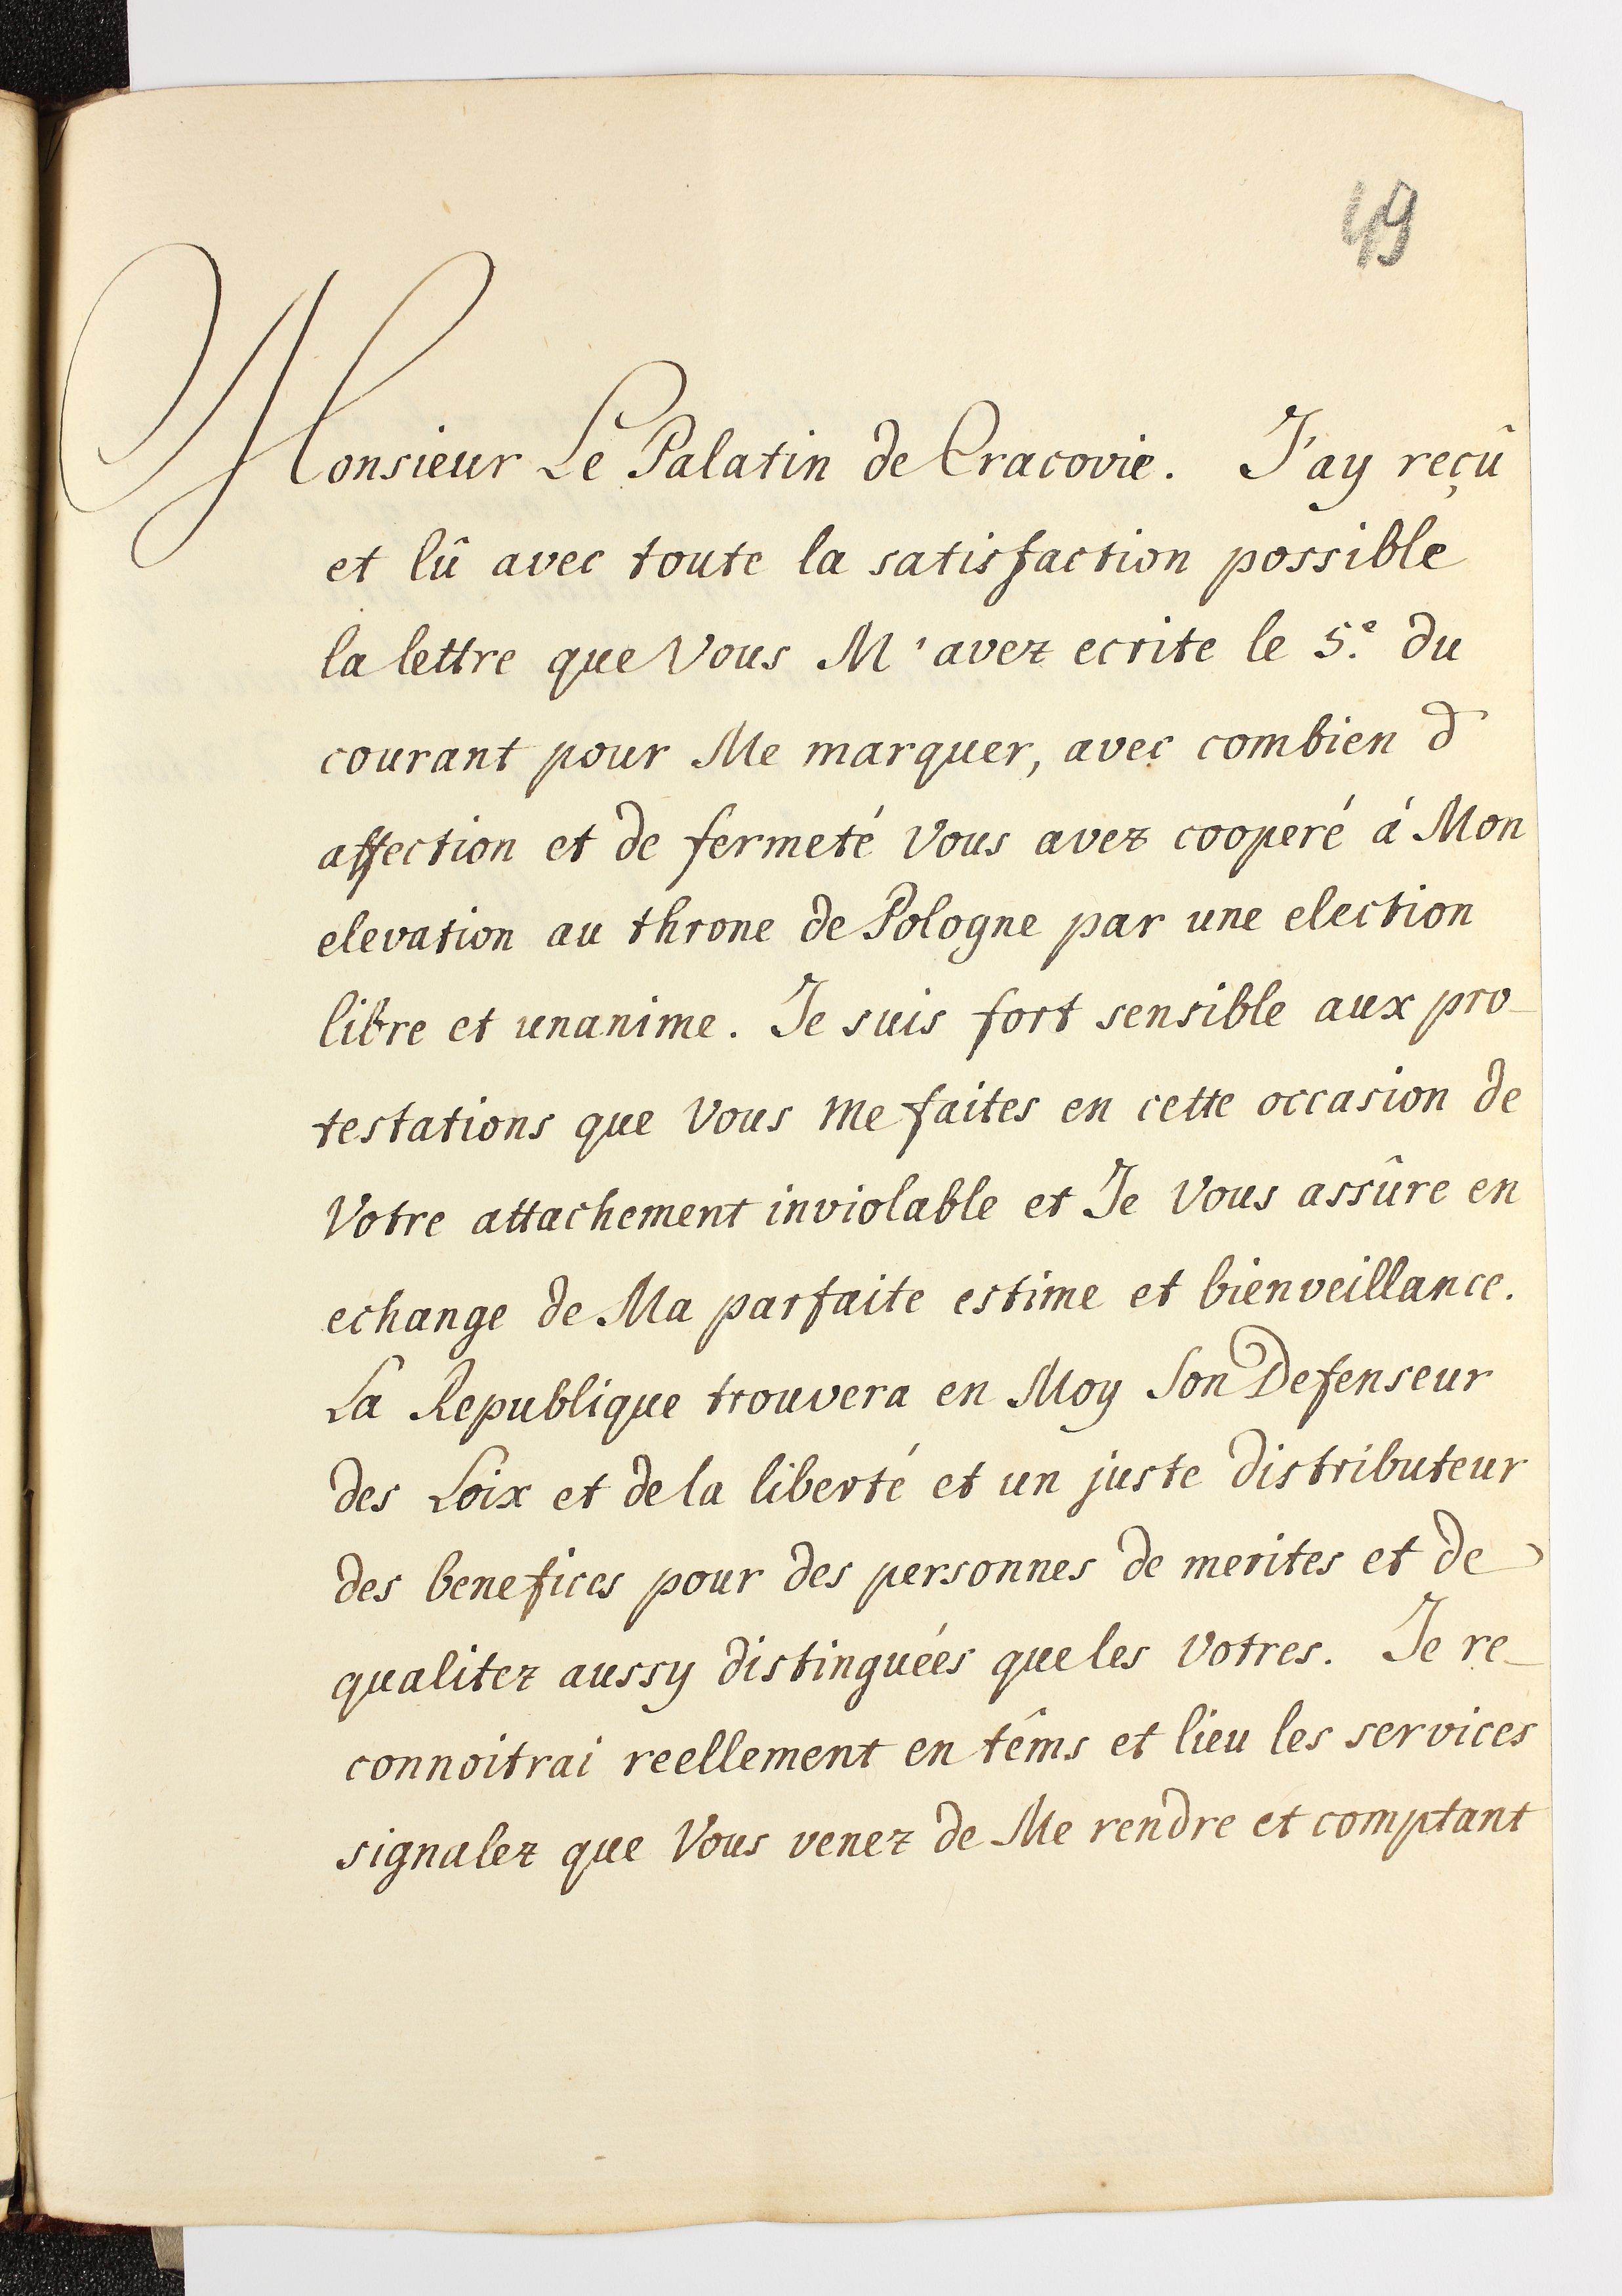 49
Monsieur Le Palatin de Cracovie. J'ay reçû
et lû avec toute la satisfaction possible
la lettre que Vous M'avez ecrite le 5.e du
courant pour Me marquer, avec combien d
affection et de fermeté Vous avez cooperé á Mon
elevation au throne de Pologne par une election
libre et unanime. Je suis fort sensible aux pro-
testations que Vous Me faites en cette occasion de
Votre attachement inviolable et Je Vous assûre en
echange de Ma parfaite estime et bienveillance.
La Republique trouvera en Moy Son Defenseur
des Loix et de la liberté et un juste distributeur
des benefices pour des personnes de merites et de
qualitez aussy distinguéés que les Votres. Je re-
connoitrai reellement en têms et lieu les services
signalez que Vous venez de Me rendre et comptant